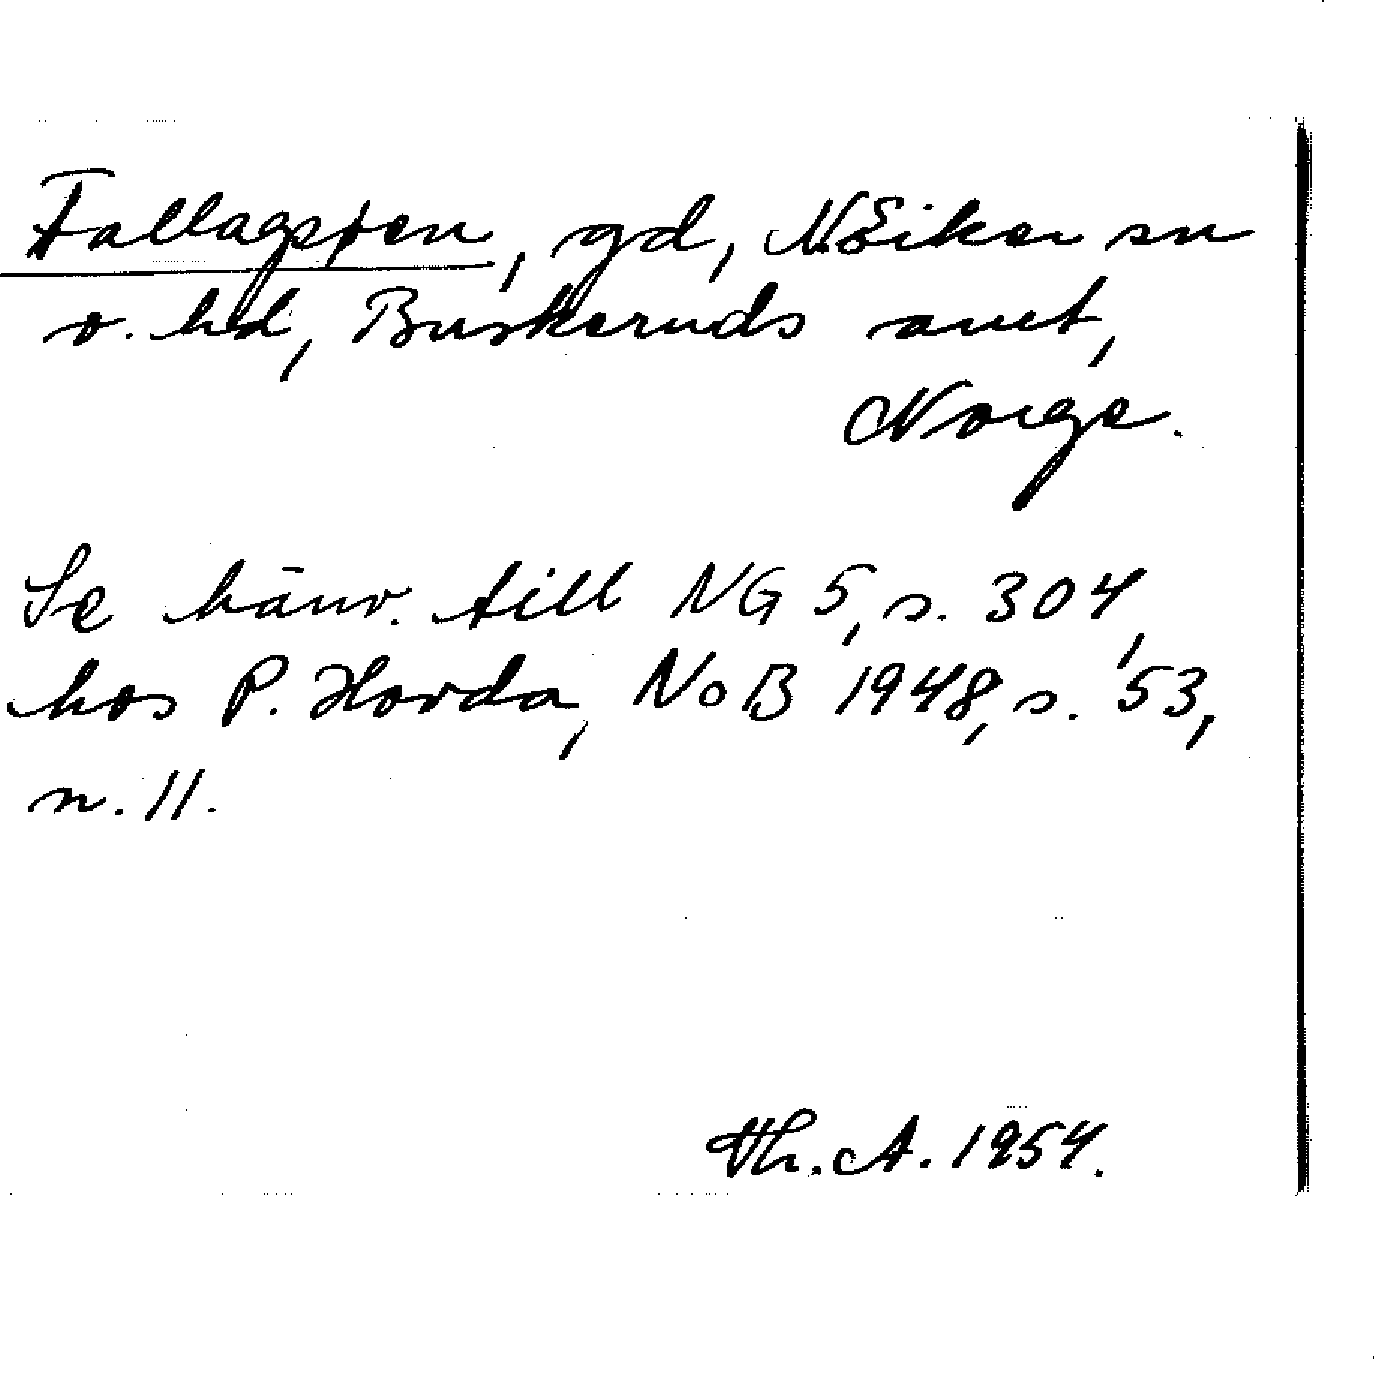 Fallagstøen, gd, N. Eiker sn
o. hd, Buskeruds amt,
Norge.
Se hänv. till NG 5, s. 304,
hos P. Hovda, NoB 1948, s. 53,
n. 11.
Th. A. 1954.